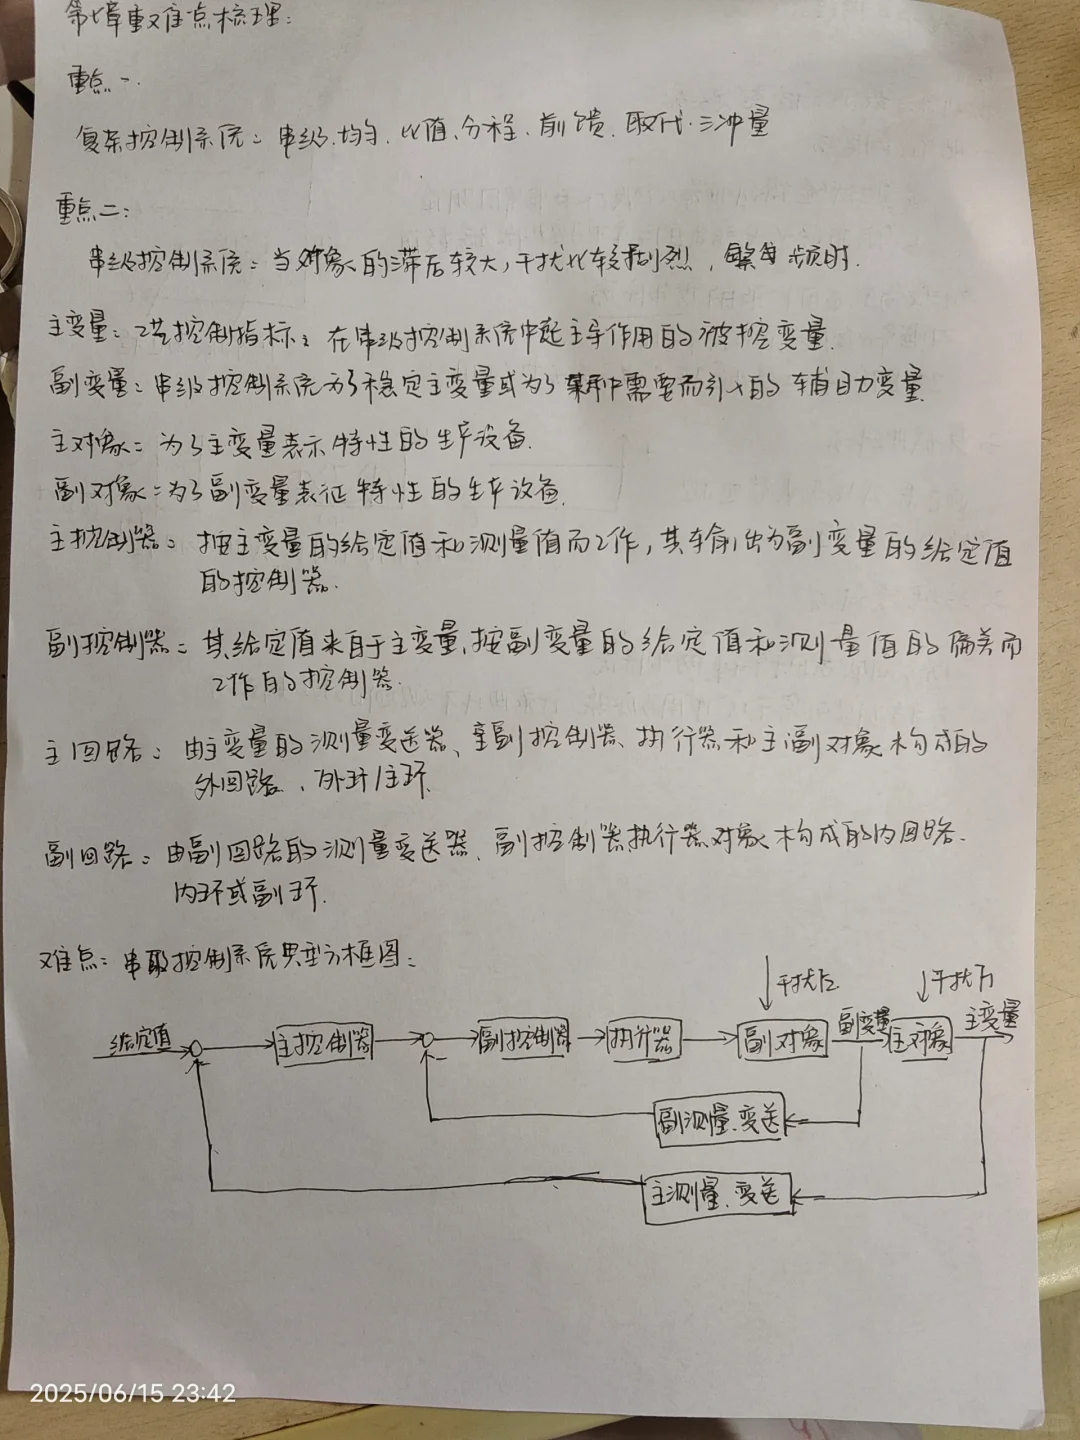 第七章重难点梳理:
重点一.
复杂控制系统: 串级.均匀.比值.分程.前馈.取代.三冲量
重点二:
串级控制系统: 当对象的滞后较大,干扰比较剧烈,繁频时.
主变量: 工艺控制指标; 在串级控制系统中起主导作用的被控变量.
副变量: 串级控制系统为了稳定主变量或为了某种需要而引入的辅助变量.
主对象: 为了主变量表示特性的生产设备.
副对象: 为了副变量表征特性的生产设备.
主控制器: 按主变量的给定值和测量值而工作,其输出为副变量的给定值
的控制器.
副控制器: 其给定值来自于主变量,按副变量的给定值和测量值的偏差而
工作的控制器.
主回路: 由主变量的测量变送器、主副控制器、执行器和主副对象构成的
外回路.、外环/主环.
副回路: 由副回路的测量变送器、副控制器执行器对象构成的内回路.
内环或副环.
难点: 串级控制系统典型方框图:
干扰f2 干扰f1
给定值 主控制器 副控制器 执行器 副对象 副变量 主对象 主变量
副测量.变送
主测量.变送
2025/06/15 23:42